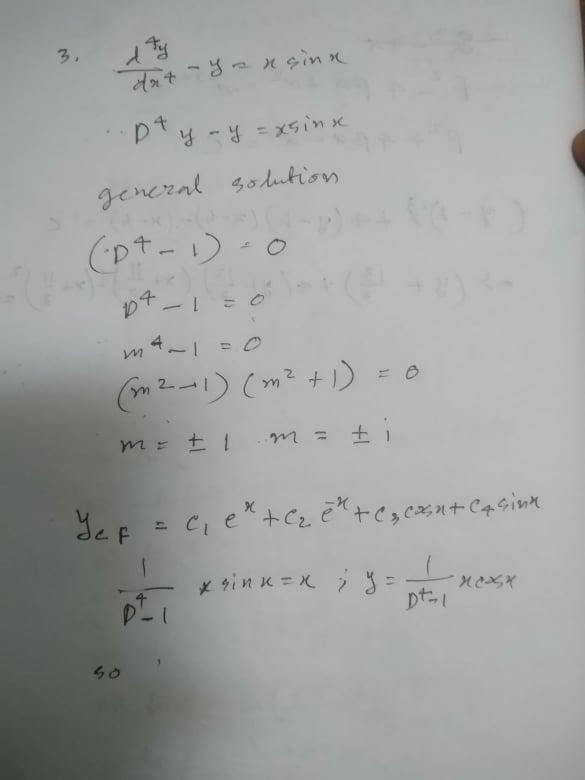 3. d⁴y/dx⁴ - y = x sin x
D⁴ y - y = x sin x
general solution
(D⁴ - 1) = 0
D⁴ - 1 = 0
m⁴ - 1 = 0
(m² - 1) (m² + 1) = 0
m = ± 1 m = ± i
y_CF = C₁ eˣ + C₂ e⁻ˣ + C₃ cos x + C₄ sin x
1/(D⁴ - 1) x sin x = x ; y = 1/(D⁴ - 1) x cos x
so